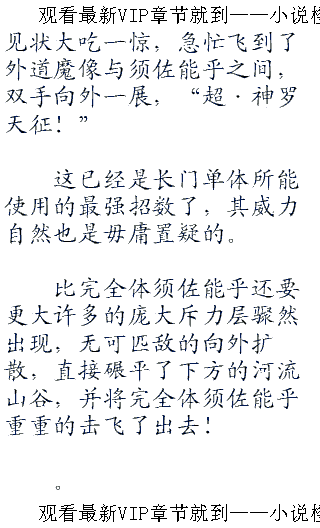 观看最新VIP章节就到——小说
见状大吃一惊，急忙飞到了
外道魔像与须佐能乎之间，
双手向外一展，“超·神罗
天征！”
这已经是长门单体所能
使用的最强招数了，其威力
自然也是毋庸置疑的。
比完全体须佐能乎还要
更大许多的庞大斥力层骤然
出现，无可匹敌的向外扩
散，直接碾平了下方的河流
山谷，并将完全体须佐能乎
重重的击飞了出去！
。
观看最新VIP章节就到——小说